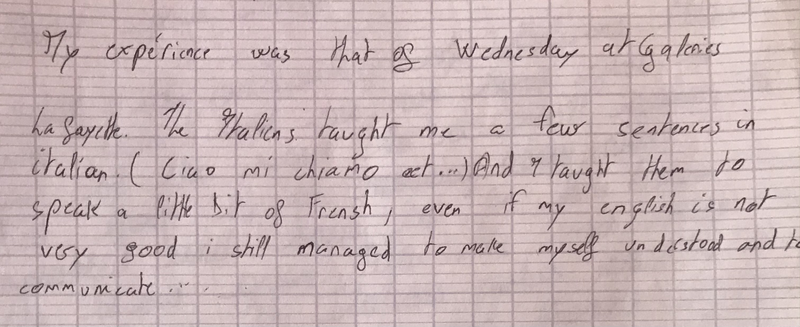 My expérience was that of Wednesday at Galeries
Lafayette. The Italiens taught me a few sentences in
italian. ( Ciao mi chiamo ect...) And I taught them to
speak a little bit of Frensh, even if my english is not
very good i still managed to make myself understood and to
communicate ...